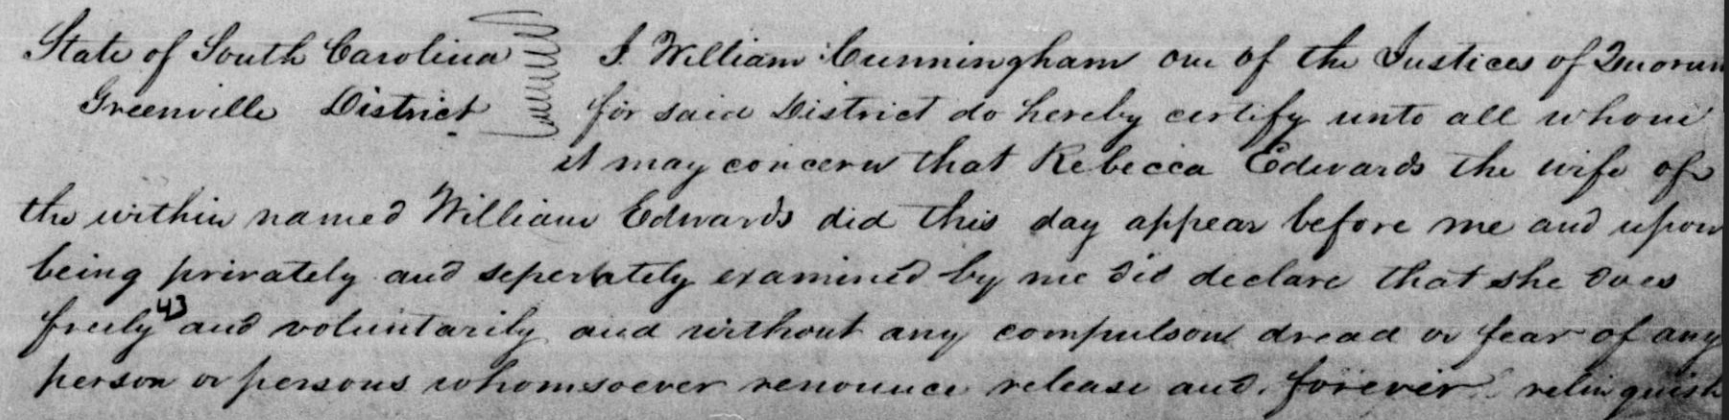 State of South Carolina I William Cunningham one of the Justices of Quorum
Greenville District for said District do hereby certify unto all whom
it may concern that Rebecca Edwards the wife of
the within named William Edwards did this day appear before me and upon
being privately and seperately examined by me did declare that she does
freely 43 and voluntarily and without any compulson dread or fear of any
person or persons whomsoever renounce release and forever relinquish